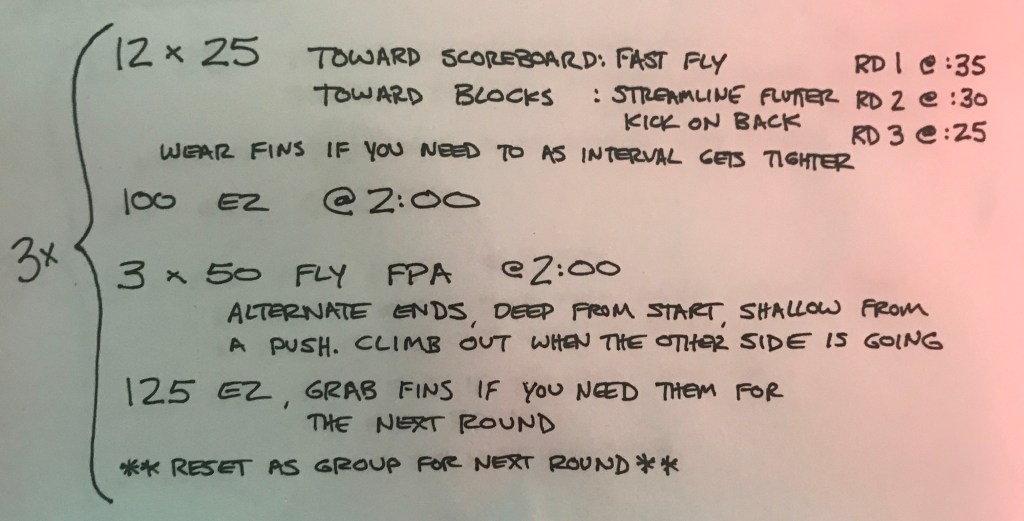 12 x 25 TOWARD SCOREBOARD: FAST FLY RD 1 @ :35
TOWARD BLOCKS : STREAMLINE FLUTTER RD 2 @ :30
KICK ON BACK RD 3 @ :25
WEAR FINS IF YOU NEED TO AS INTERVAL GETS TIGHTER
100 EZ @ 2:00
3x
3 x 50 FLY FPA @ 2:00
ALTERNATE ENDS, DEEP FROM START, SHALLOW FROM
A PUSH. CLIMB OUT WHEN THE OTHER SIDE IS GOING
125 EZ, GRAB FINS IF YOU NEED THEM FOR
THE NEXT ROUND
** RESET AS GROUP FOR NEXT ROUND **